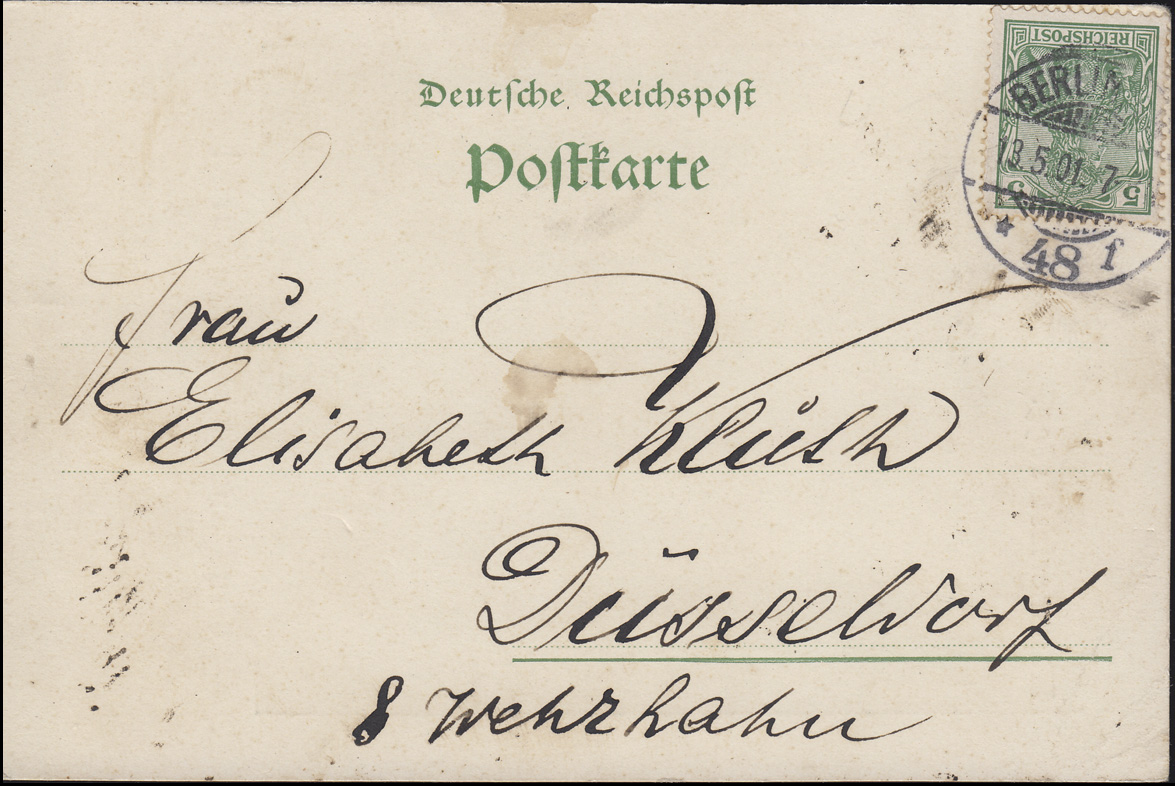 Deutsche Reichspost
Postkarte
REICHSPOST
5 5
BERLIN
13.5.01. 7-
* 48 f
Frau
Elisabeth Kluth
Düsseldorf
8 Wehrhahn